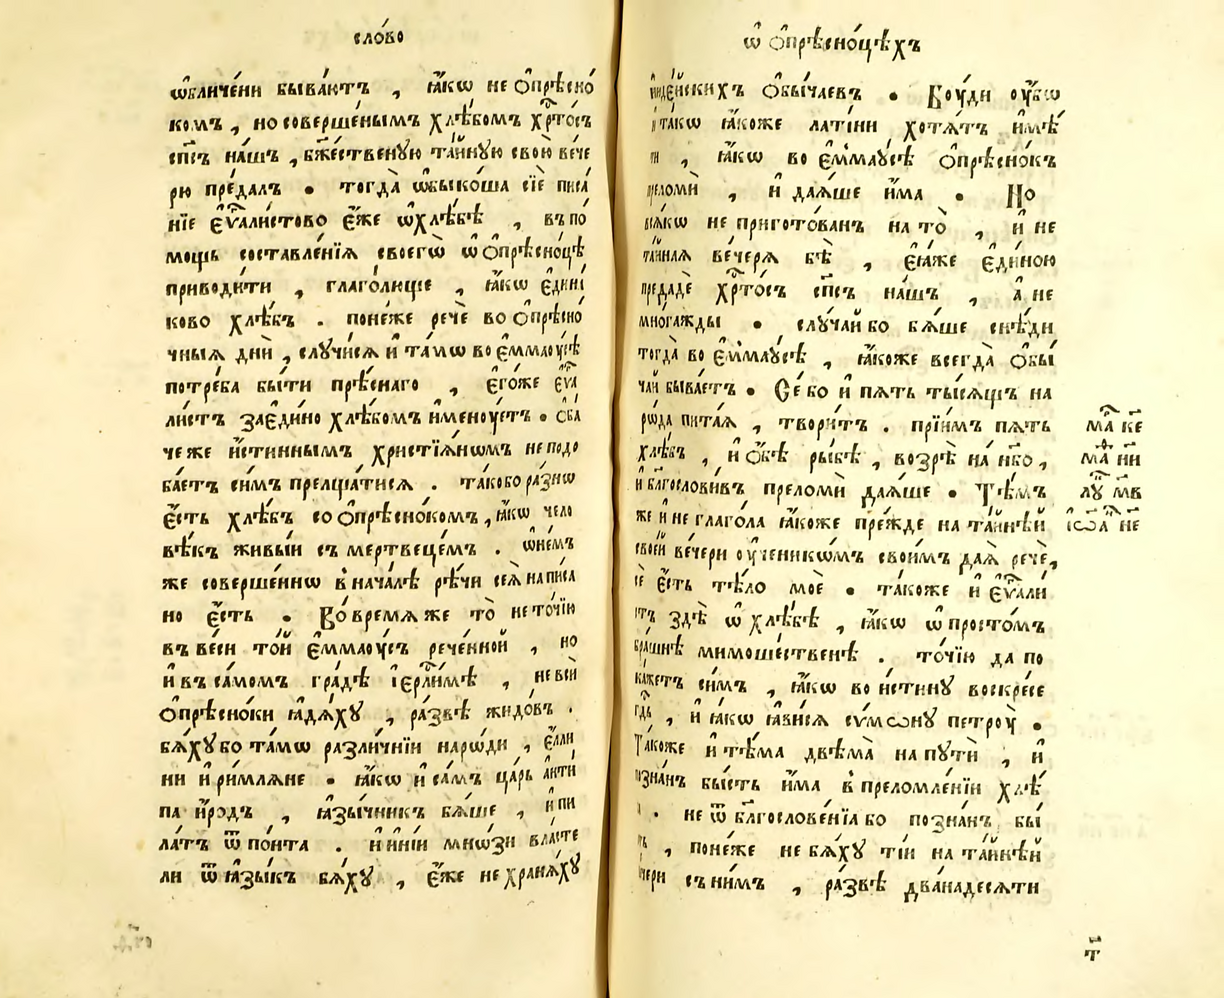 сло́во
ѡ҆бличе́ни быва́ютъ , ꙗ҆́кѡ не ѻ҆прѣсно́
комъ , но соверше́нымъ хлѣ́бомъ хрⷭ҇то́съ
сп҃съ на́шъ , бж҃ественꙋю та́йнꙋю свою̀ вече
рю пре́далъ • тогда̀ ѡ҆быко́ша сїѐ писа́
нїе є҆ѵⷢ҇али́стово є҆́же ѡ҆ хлѣ́бѣ , въ по́
мощь составле́нїѧ своегѡ̀ ѡ҆ ѻ҆прѣсно́цѣ
приводи́ти , глаго́лище , ꙗ҆́кѡ є҆дині́
ково хлѣ́бъ . поне́же речѐ во ѻ҆прѣсно́
чныѧ дни̑ , слꙋчи́сѧ и҆ та́мѡ во є҆ммаоу́сѣ
потре́ба бы́ти прѣ́снаго , є҆го́же є҆ѵⷢ҇а
ли́стъ заеди́но хлѣ́бомъ и҆менꙋ́етъ • Ѻ҆ба́
че же и҆́стиннымъ христїѧ́нѡмъ не подо
ба́етъ си́мъ прелща́тисѧ . та́ко бо ра́знѡ
є҆́сть хлѣ́бъ со ѻ҆прѣсно́комъ , ꙗ҆́кѡ чело
вѣ́къ живы́и съ мертвеце́мъ . ѡ҆ не́мъ
же соверше́ннѡ в нача́лѣ рѣ́чи сеѧ̀ написа
но є҆́сть • Во́ времѧ же то̀ не то́чїю
въ ве́си то́й є҆ммаоу́съ рече́нной , но
и҆ въ са́момъ гра́дѣ і҆ерⷭ҇ли́мѣ , не всѝ
ѻ҆прѣсно́ки ꙗ҆дѧ́хꙋ , ра́звѣ жидо́въ .
бѧ́хꙋ бо та́мѡ разли́чнїи наро́ди , є҆́лли
ни и҆ ри́млѧне • ꙗ҆́кѡ и҆ са́мъ ца́рь а҆нті́
па и҆́родъ , ꙗ҆зы́чникъ бѧ́ше , и҆ пи
ла́тъ ѿ по́нта . и҆ и҆ні́и мно́зи вла́сте
ли ѿ ꙗ҆зы̑къ бѧ́хꙋ , є҆́же не хранѧ́хꙋ
ѡ҆ ѻ҆прѣсно́цѣхъ
і҆ꙋде́йскихъ ѻ҆бы́чаевъ • Бꙋ́ди ᲂу҆́бѡ
и҆ та́кѡ ꙗ҆́коже лати́ни хотѧ́тъ и҆мѣ́
ти , ꙗ҆́кѡ во є҆́ммаꙋсѣ ѻ҆прѣсно́къ
преломѝ , и҆ даѧ́ше и҆́ма • Но
всѧ́кѡ не пригото́ванъ на то̀ , и҆ не
та́йнаѧ ве́черѧ бѣ̀ , є҆ѧ́же є҆ди́ною
предадѐ хрⷭ҇то́съ сп҃съ на́шъ , а҆ не
мно́гажды • слꙋ́чай бо бѧ́ше снѣ́ди
тогда̀ во є҆́ммаꙋсѣ , ꙗ҆́коже всегда̀ ѻ҆бы́
чай быва́етъ • Се́ бо и҆ пѧ́ть ты́сѧщъ на
ро́да пита́ѧ , твори́тъ . прїи́мъ пѧ́ть
хлѣ̑бъ , и҆ ѻ҆́бѣ ры́бѣ , возрѣ̀ на́ нб҃о ,
и҆ блг҃ослови́въ преломѝ даѧ́ше • Тѣ́мъ
же и҆ не глаго́ла ꙗ҆́коже пре́жде на та́йнѣй
свое́й ве́чери ᲂу҆ченикѡ́мъ свои̑мъ даѧ̀ речѐ ,
сѐ є҆́сть тѣ́ло моѐ • та́коже и҆ є҆ѵⷢ҇али́
стъ здѣ̀ ѡ҆ хлѣ́бѣ , ꙗ҆́кѡ ѡ҆ просто́мъ
бра́шнѣ мимоше́ственѣ . то́чїю да по
ка́жетъ си́мъ , ꙗ҆́кѡ во и́стинꙋ воскре́се
гдⷭ҇ь , и҆ ꙗ҆́кѡ ꙗ҆ви́сѧ сѵ́мѡнꙋ петро́ꙋ •
Та́коже и҆ тѣ́ма двѣма̀ на пꙋтѝ , и҆
позна́нъ бы́сть и҆́ма в преломле́нїи хлѣ́
. не ѿ блг҃ослове́нїѧ бо позна́нъ бы́
, поне́же не бѧ́хꙋ ті́и на та́йнѣй
ве́чери съ ни́мъ , ра́звѣ двана́десѧти
маⷴ҇ ке
маⷬ҇ ни
лꙋⷦ҇ мв
і҆ѡⷩ҇ не
т҃